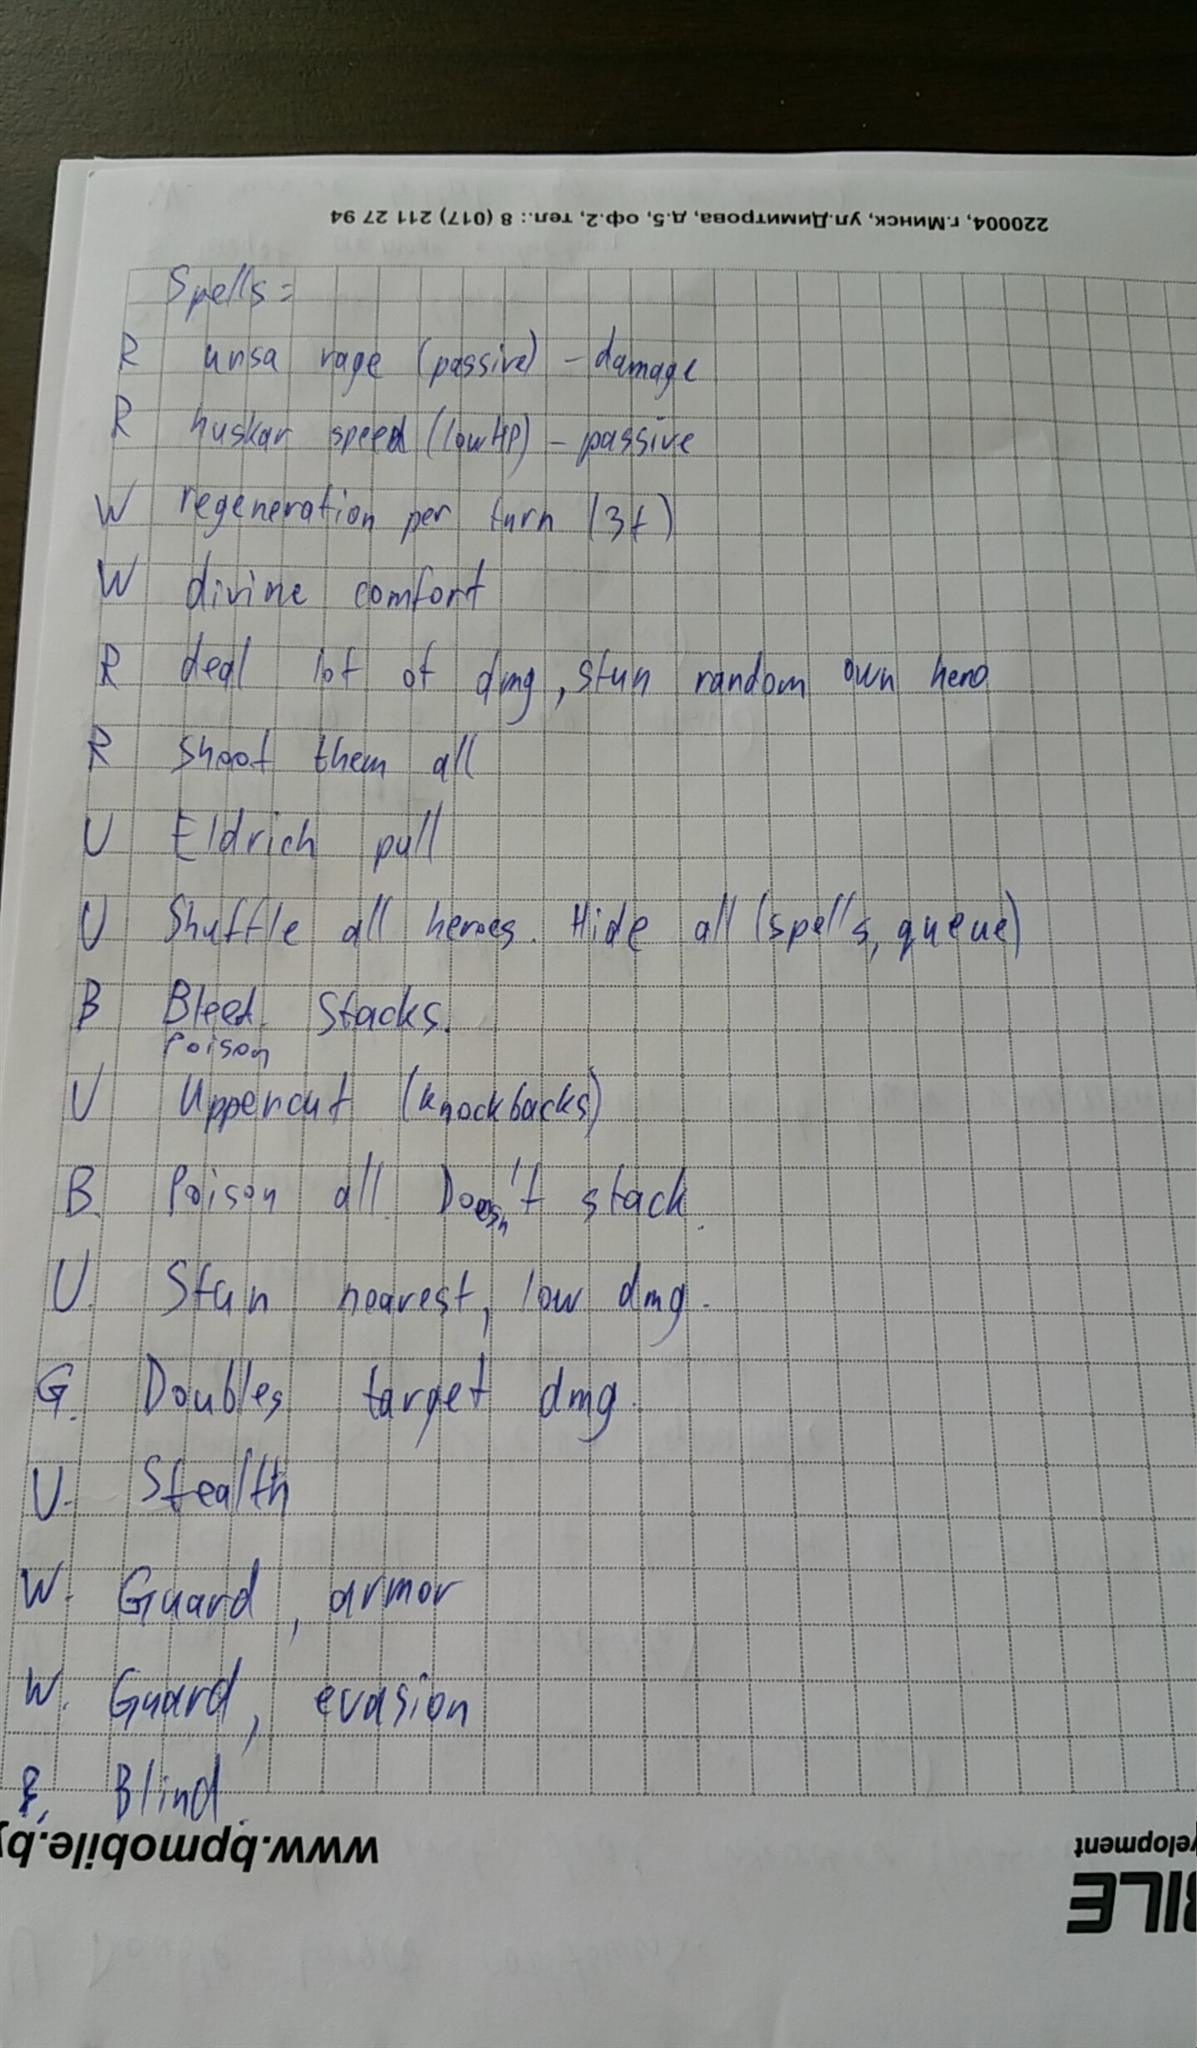 220004, г.Минск, ул.Димитрова, д.5, оф.2, тел.: 8 (017) 211 27 94
Spells:
R ursa rage (passive) - damage
R huskar speed (low HP) - passive
W regeneration per turn (3t)
W divine comfort
R deal lot of dmg, stun random own hero
R Shoot them all
U Eldrich pull
U Shuffle all heroes. Hide all (spells, queue)
B Bleed stacks.
Poison
U Uppercut (knockbacks)
B. Poison all. Doesn't stack.
U. Stun nearest, low dmg.
G. Doubles target dmg.
U. Stealth
W. Guard, armor
W. Guard, evasion
Blind.
www.bpmobile.by